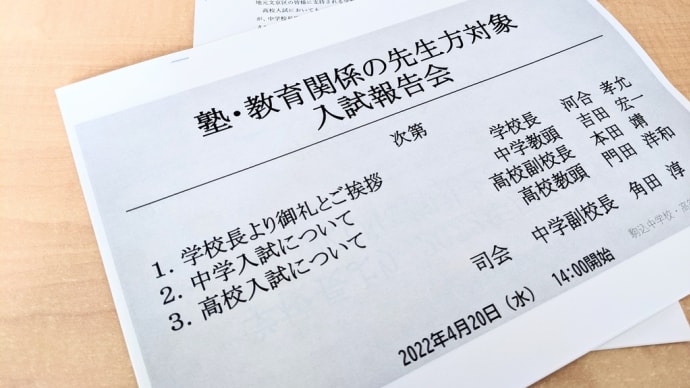 地元文京区の皆様に支持される
高校入試においても
塾・教育関係の先生方対象
入試報告会
次第
1. 学校長より御礼とご挨拶 学校長 河合 孝允
2. 中学入試について 中学教頭 吉田 宏一
3. 高校入試について 高校副校長 本田 靖
高校教頭 門田 洋和
司会 中学副校長 角田 淳
駒込中学校・高
2022年4月20日（水） 14:00開始